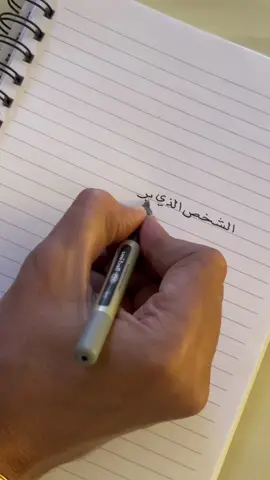 الشخص الذي ير